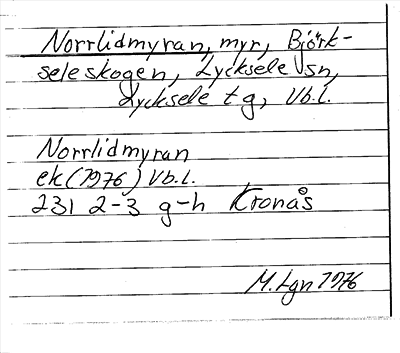 Norrlidmyran, myr, Björk-
seleskogen, Lycksele sn,
Lycksele tg, Vb.l.
Norrlidmyran
ek (1976) Vb.l.
231 2-3 g-h Kronås
M. Lgn 1976